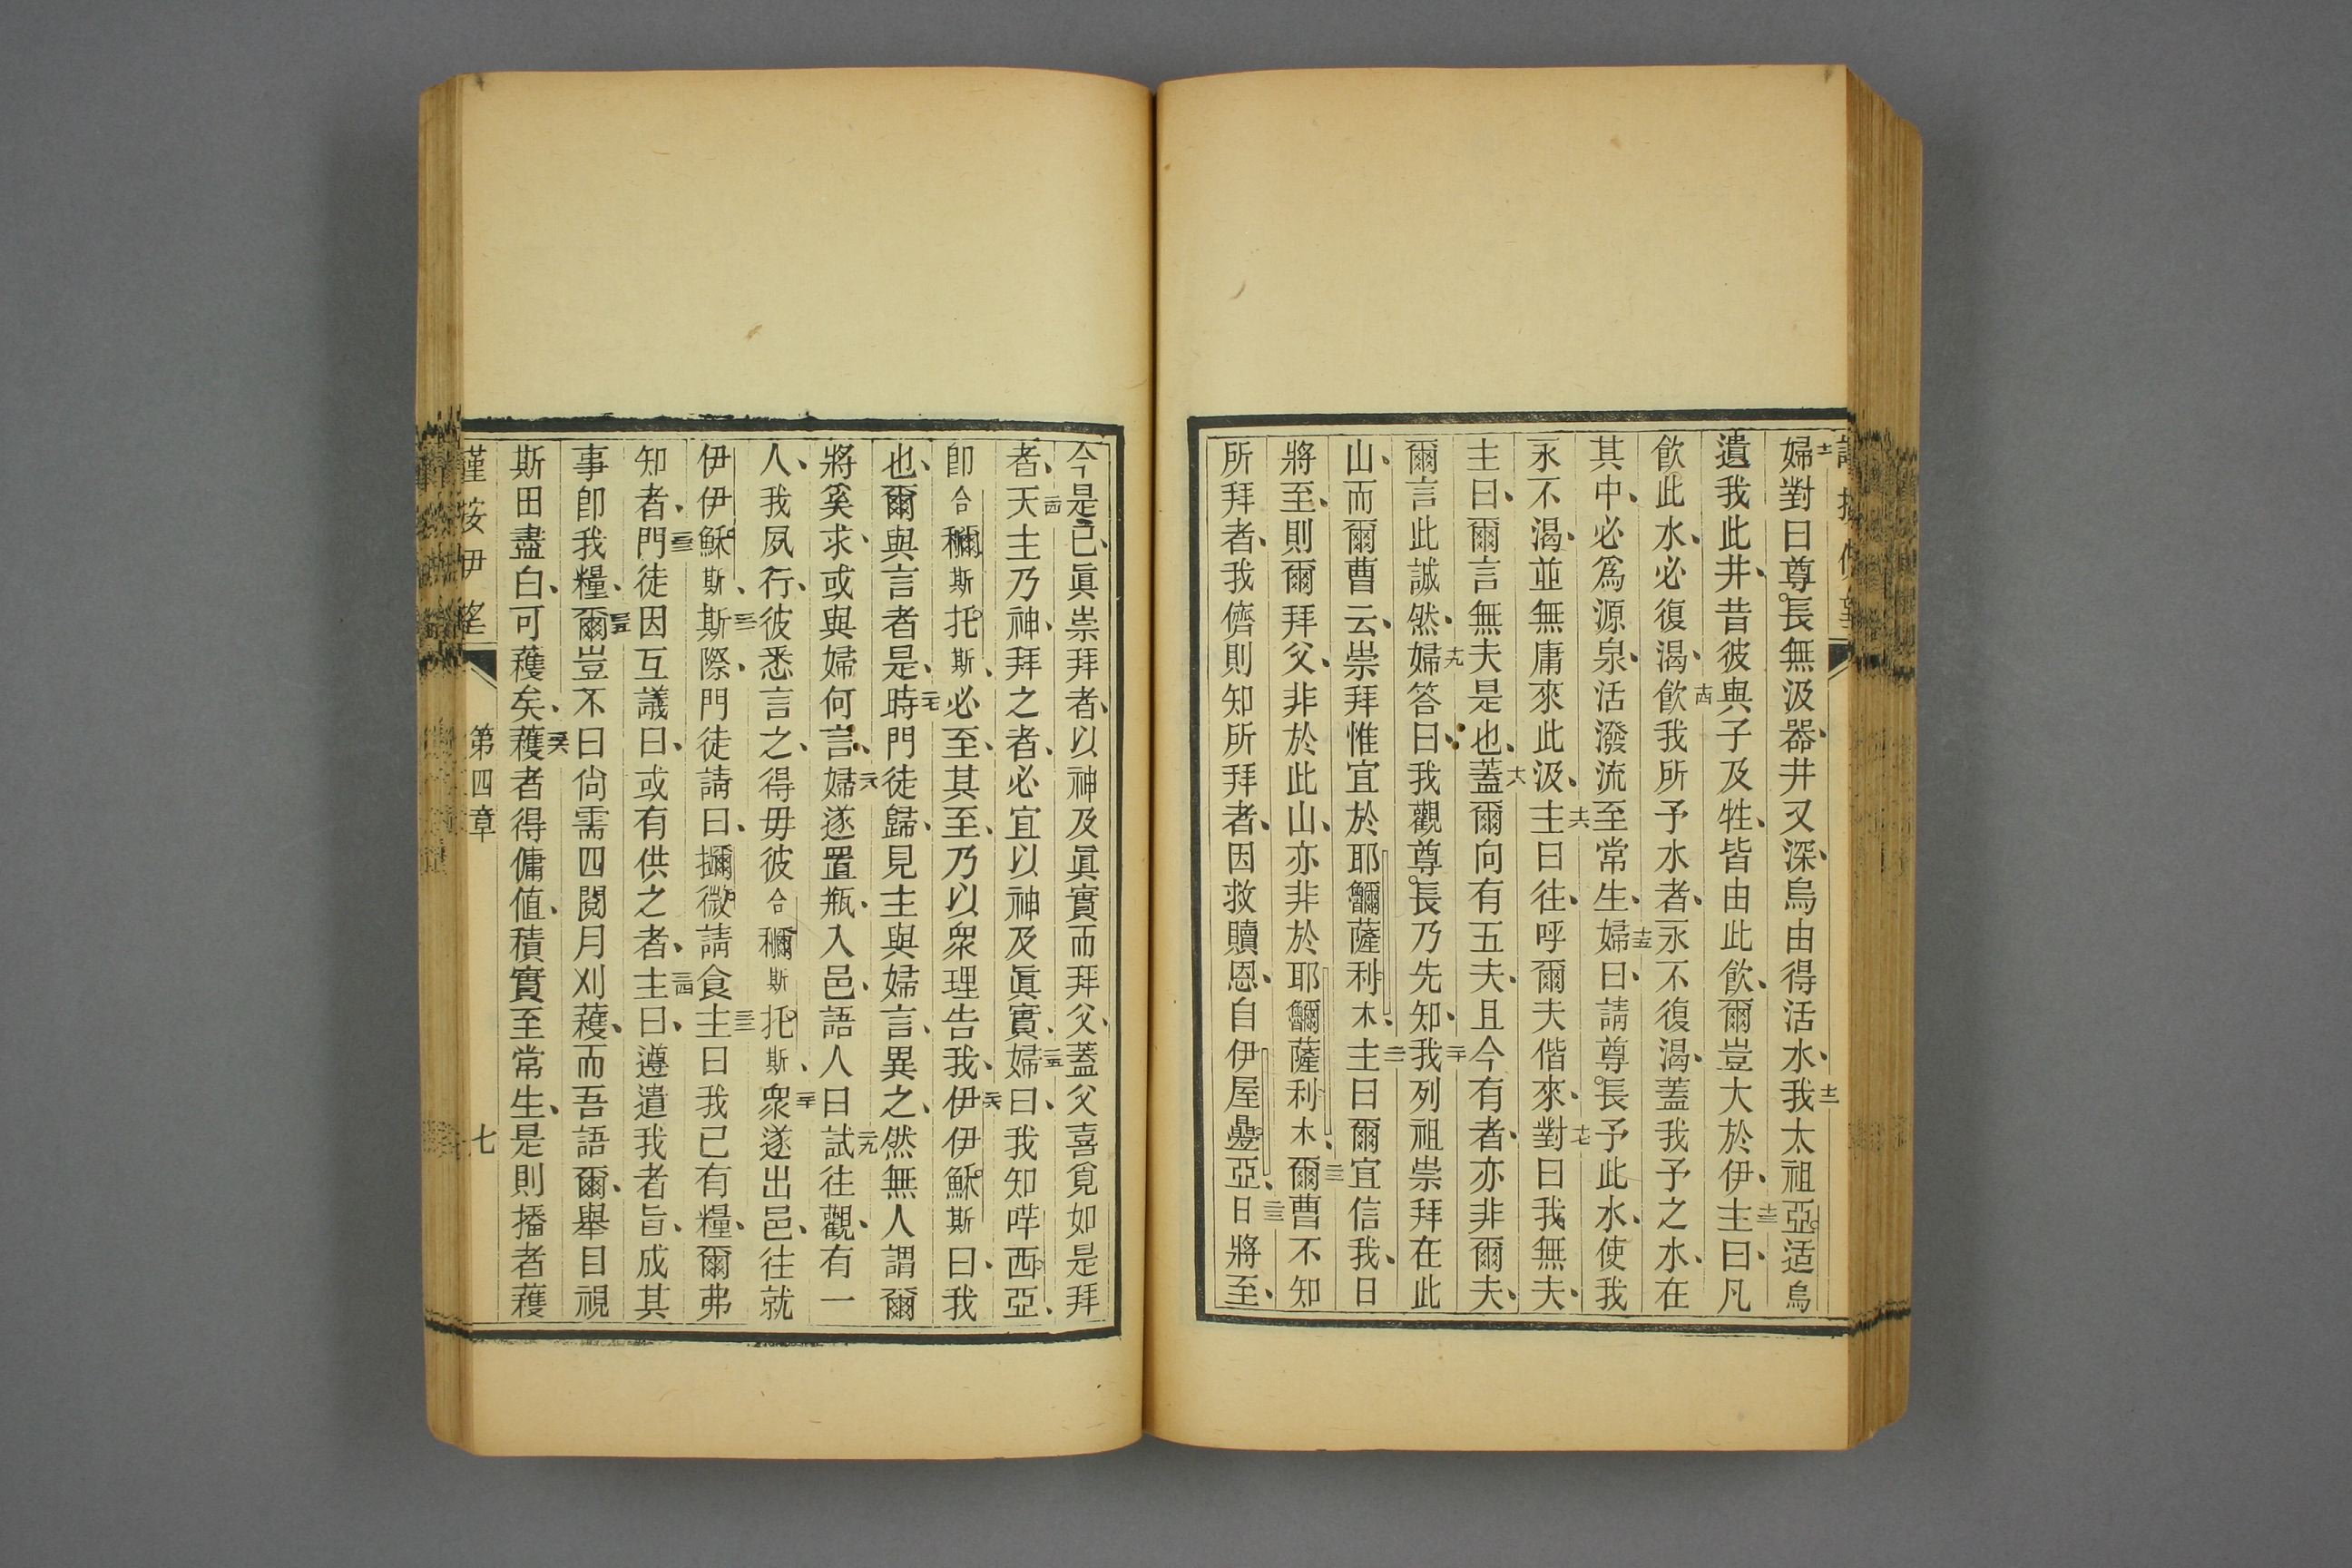 十一婦對曰尊長無汲器、井又深、烏由得活水、十二我太祖亞适烏
遺我此井、昔彼與子及牲、皆由此飲、爾豈大於伊、十三主曰、凡
飲此水、必復渴、十四飲我所予水者、永不復渴、蓋我予之水、在
其中、必爲源泉、活潑流至常生、十五婦曰、請尊長予此水、使我
永不渴、並無庸來此汲、十六主曰往、呼爾夫偕來、十七對曰我無夫、
主曰、爾言無夫是也、十八蓋爾向有五夫、且今有者、亦非爾夫、
爾言此誠然、十九婦答曰、我觀尊長乃先知、二十我列祖崇拜在此
山、而爾曹云、崇拜惟宜於耶薩利木、二一主曰爾宜信我、日
將至、則爾拜父、非於此山、亦非於耶薩利木、二二爾曹不知
所拜者、我儕則知所拜者、因救贖恩、自伊屋亞、二三日將至、
今是已、眞崇拜者、以神及眞實而拜父、蓋父喜覓如是拜
者、二四天主乃神、拜之者、必宜以神及眞實、二五婦曰、我知哶西亞、
卽合斯托斯、必至、其至、乃以衆理告我、二六伊伊穌斯曰、我
也、爾與言者是、二七時門徒歸、見主與婦言、異之、然無人謂爾
將奚求、或與婦何言、二八婦遂置瓶、入邑、語人曰、二九試往觀、有一
人、我夙行、彼悉言之、得毋彼合斯托斯、三十衆遂出邑、往就
伊伊穌斯、三一斯際、門徒請曰、微請食、三二主曰我已有糧、爾弗
知者、三三門徒因互議曰、或有供之者、三四主曰、遵遣我者旨、成其
事卽我糧、三五爾豈不曰尙需四閱月刈穫、而吾語爾、舉目視
斯田盡白、可穫矣、三六穫者得傭值、積實至常生、是則播者穫
第四章
七